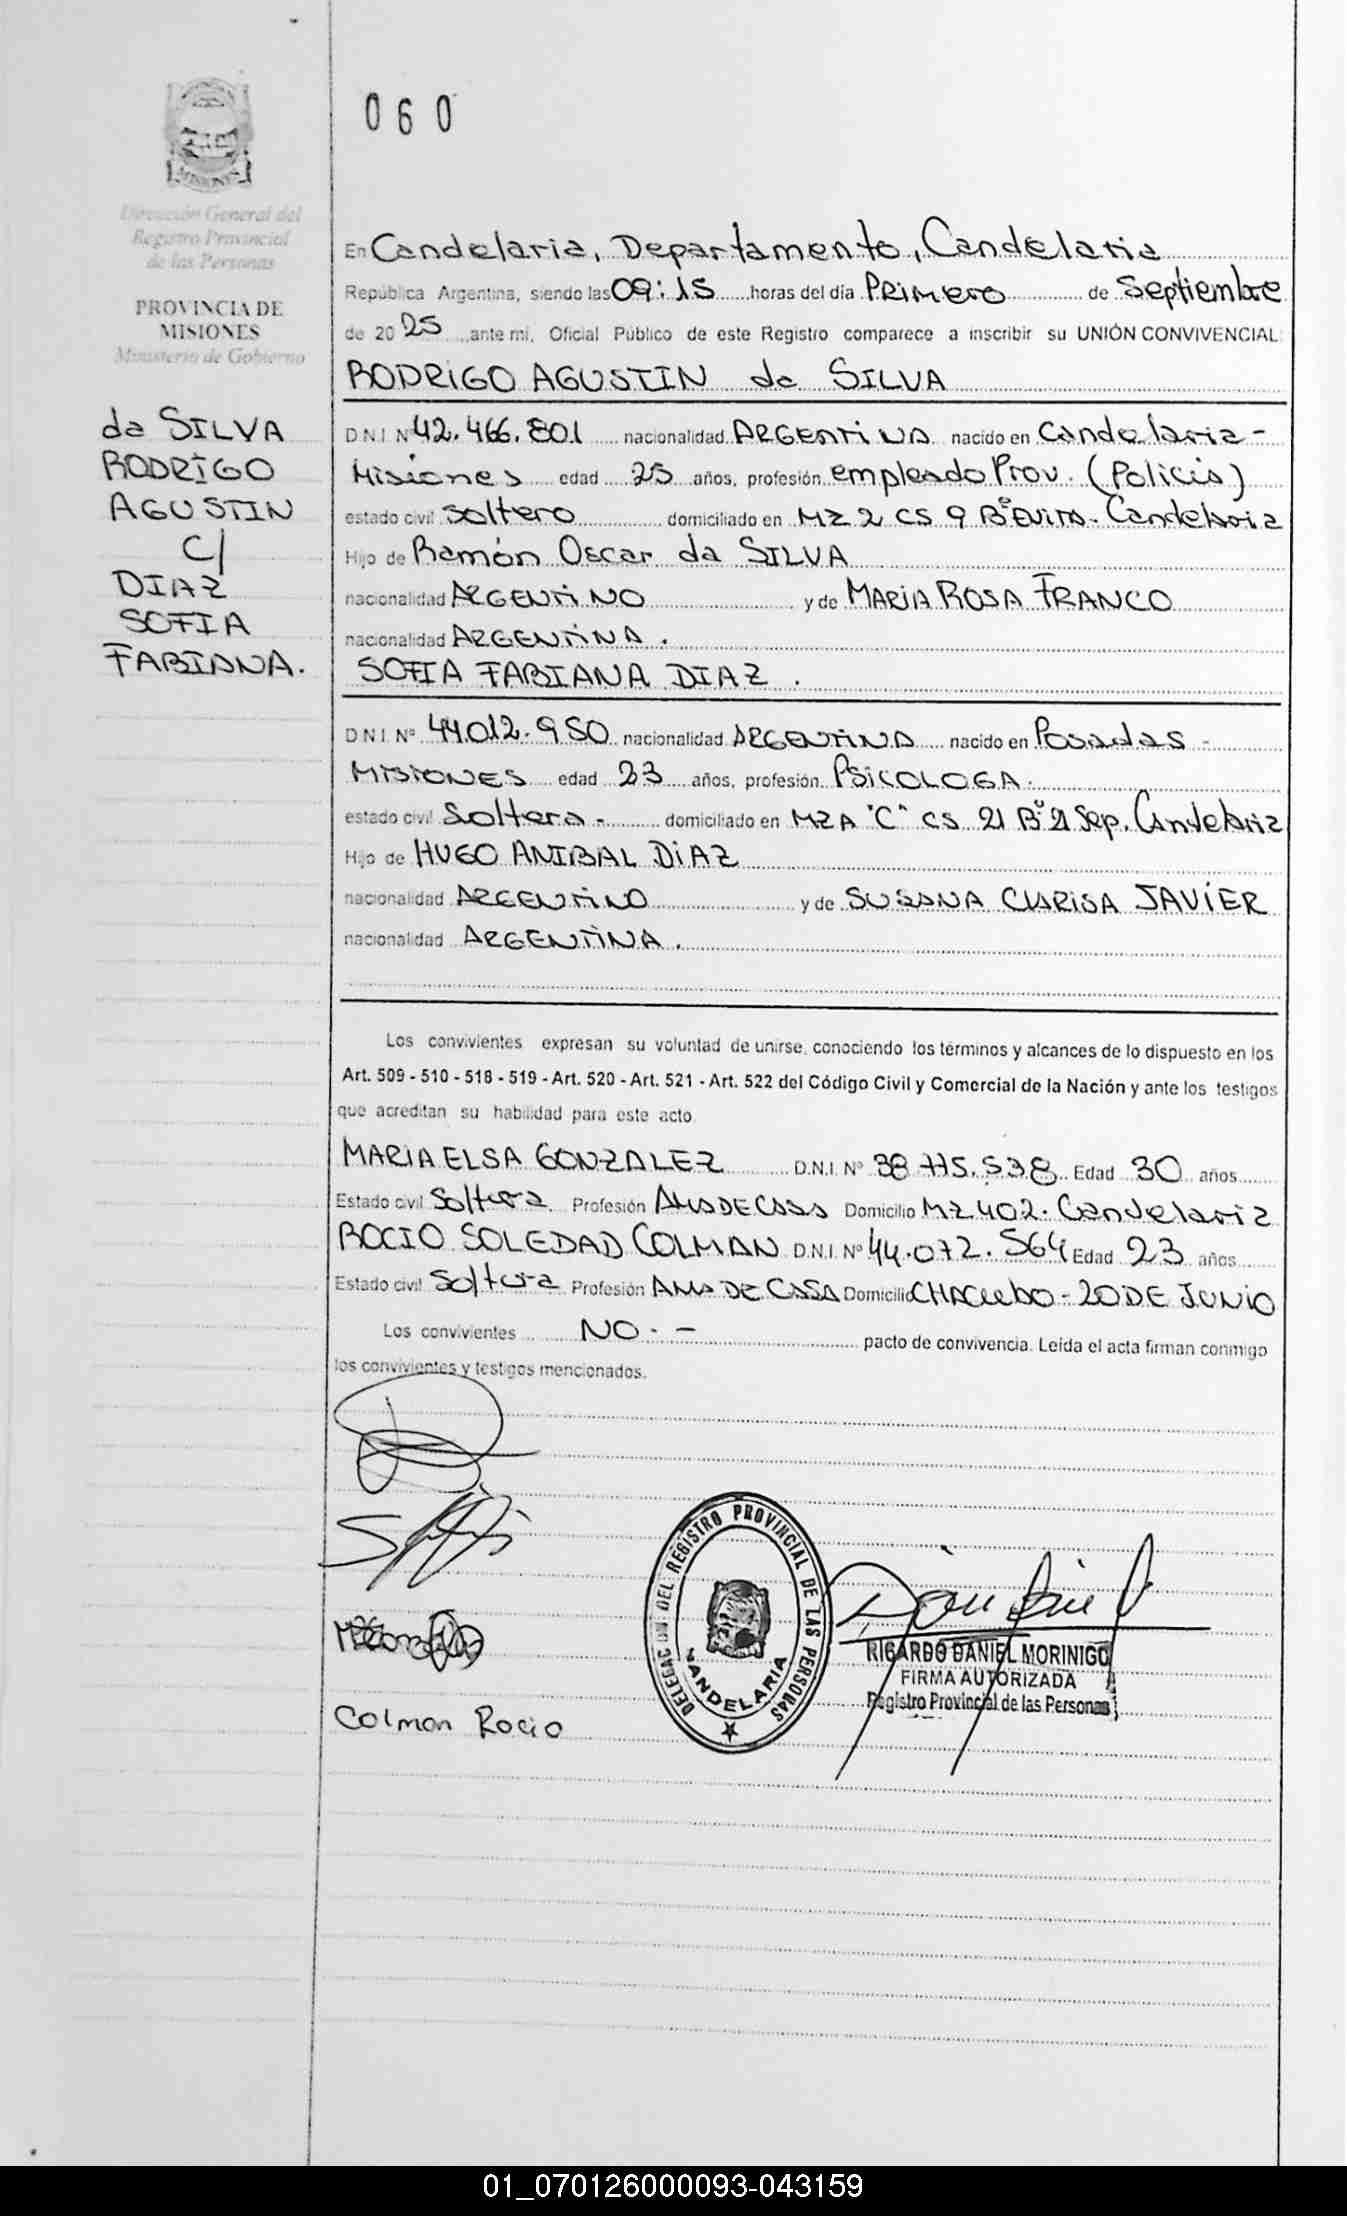 060
Dirección General del
Registro Provincial
de las Personas
PROVINCIA DE
MISIONES
Ministerio de Gobierno
da SILVA
RODRIGO
AGUSTIN
C/
DIAZ
SOFIA
FABIANA.
En Candelaria, Departamento, Candelaria
República Argentina, siendo las 09:15 horas del día PRIMERO de Septiembre
de 2025 ante mi, Oficial Público de este Registro comparece a inscribir su UNIÓN CONVIVENCIAL:
RODRIGO AGUSTIN da SILVA
D.N.I. Nº 42.466.801 nacionalidad ARGENTINA nacido en Candelaria -
Misiones edad 25 años, profesión empleado Prov. (Policia)
estado civil soltero domiciliado en MZ 2 CS 9 Bº EVITA - Candelaria
Hijo de Ramón Oscar da SILVA
nacionalidad ARGENTINO y de MARIA ROSA FRANCO
nacionalidad ARGENTINA.
SOFIA FABIANA DIAZ.
D.N.I. Nº 44.012.950 nacionalidad ARGENTINA nacido en Posadas -
MISIONES edad 23 años, profesión PSICOLOGA.
estado civil Soltera - domiciliado en MZA "C" CS 21 Bº 21 Sep. Candelaria
Hijo de HUGO ANIBAL DIAZ
nacionalidad ARGENTINO y de SUSANA CLARISA JAVIER
nacionalidad ARGENTINA.
Los convivientes expresan su voluntad de unirse, conociendo los términos y alcances de lo dispuesto en los
Art. 509 - 510 - 518 - 519 - Art. 520 - Art. 521 - Art. 522 del Código Civil y Comercial de la Nación y ante los testigos
que acreditan su habilidad para este acto
MARIA ELSA GONZALEZ D.N.I. Nº 38.775.538 Edad 30 años
Estado civil Soltera Profesión AMA DE CASA Domicilio MZ 402. Candelaria
ROCIO SOLEDAD COLMAN D.N.I. Nº 44.072.564 Edad 23 años
Estado civil Soltera Profesión AMA DE CASA Domicilio CHACUBO - 20 DE JUNIO
Los convivientes NO. - pacto de convivencia. Leída el acta firman conmigo
los convivientes y testigos mencionados.
DELEGACION DEL REGISTRO PROVINCIAL DE LAS PERSONAS
CANDELARIA
RICARDO DANIEL MORINIGO
FIRMA AUTORIZADA
Registro Provincial de las Personas
Colman Rocio
01_070126000093-043159